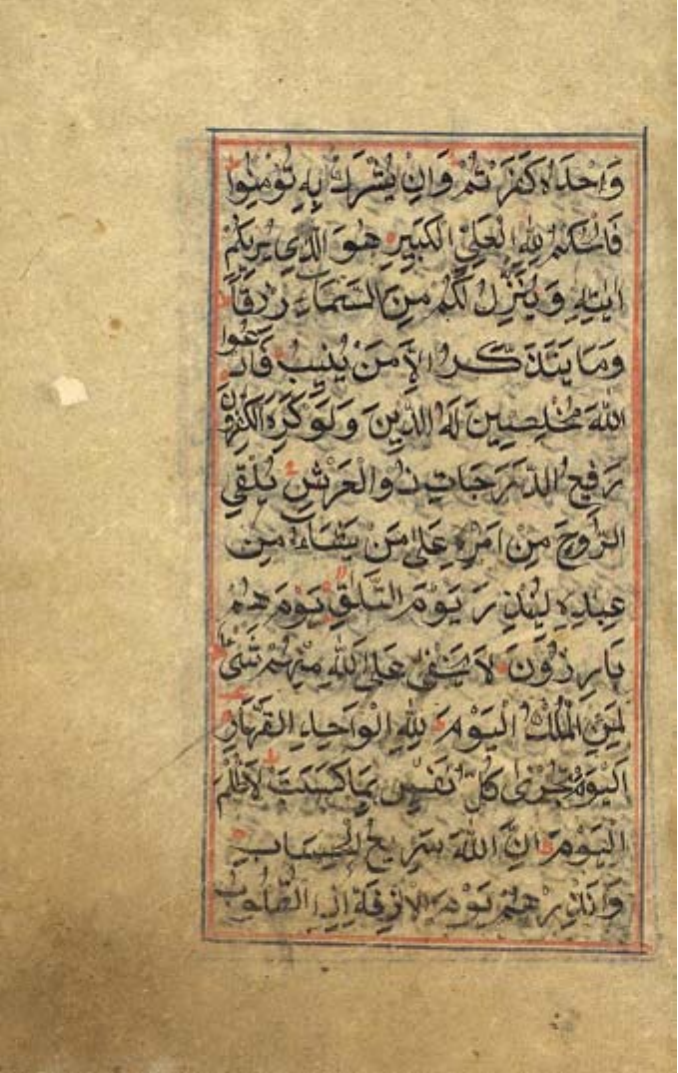 وَاحْدَهُ كَفَرْتُمْ وَاِنْ يُشْرَكْ بِهِ تُؤْمِنُوا
فَالْحُكْمُ لِلّٰهِ الْعَلِيِّ الْكَبِيرِ هُوَ الَّذِي يُرِيكُمْ
اٰيٰتِهِ وَيُنَزِّلُ لَكُمْ مِنَ السَّمَاءِ رِزْقًا
وَمَا يَتَذَكَّرُ اِلَّا مَنْ يُنِيبُ فَادْعُوا
اللّٰهَ مُخْلِصِينَ لَهُ الدِّينَ وَلَوْ كَرِهَ الْكٰفِرُونَ
رَفِيعُ الدَّرَجَاتِ ذُو الْعَرْشِ يُلْقِي
الرُّوحَ مِنْ اَمْرِهِ عَلٰى مَنْ يَشَاءُ مِنْ
عِبَادِهِ لِيُنْذِرَ يَوْمَ التَّلَاقِ يَوْمَ هُمْ
بَارِزُونَ لَا يَخْفٰى عَلَى اللّٰهِ مِنْهُمْ شَيْءٌ
لِمَنِ الْمُلْكُ الْيَوْمَ لِلّٰهِ الْوَاحِدِ الْقَهَّارِ
اَلْيَوْمَ تُجْزٰى كُلُّ نَفْسٍ بِمَا كَسَبَتْ لَا ظُلْمَ
الْيَوْمَ اِنَّ اللّٰهَ سَرِيعُ الْحِسَابِ
وَاَنْذِرْهُمْ يَوْمَ الْاٰزِفَةِ اِذِ الْقُلُوبُ